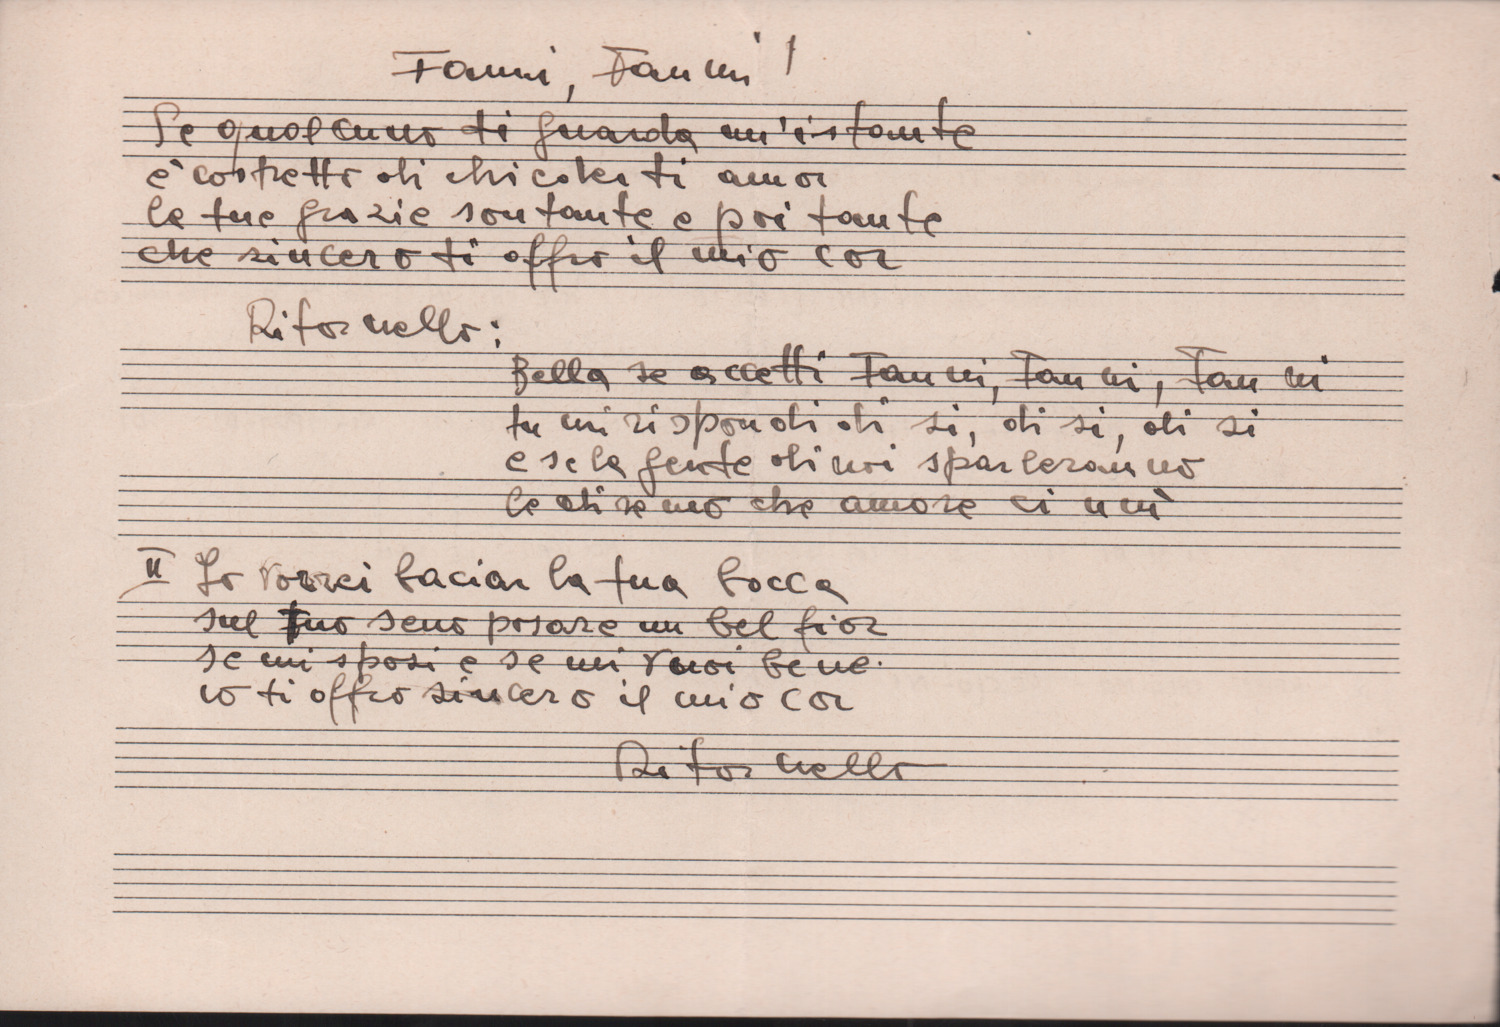 Fanni, Fanni!
Se qualcuno ti guarda un'istante
è costretto di chiederti amor
le tue grazie son tante e poi tante
che sincero ti offro il mio cor
Ritornello:
Bella se accetti Fanni, Fanni, Fanni
tu mi rispondi di si, di si, di si
e se la gente di noi sparleranno
le diremo che amore ci unì
II Io vorrei baciar la tua bocca
sul tuo seno posare un bel fior
se mi sposi e se mi vuoi bene.
io ti offro sincero il mio cor
Ritornello